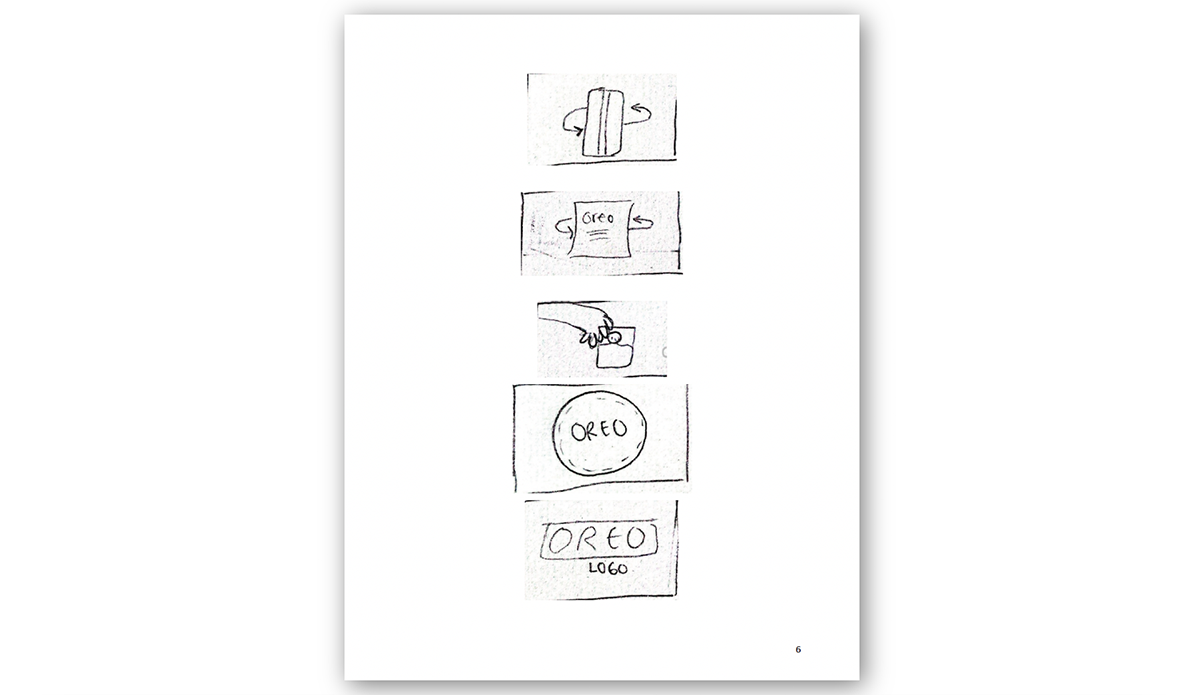 Oreo
OREO
OREO
LOGO
6